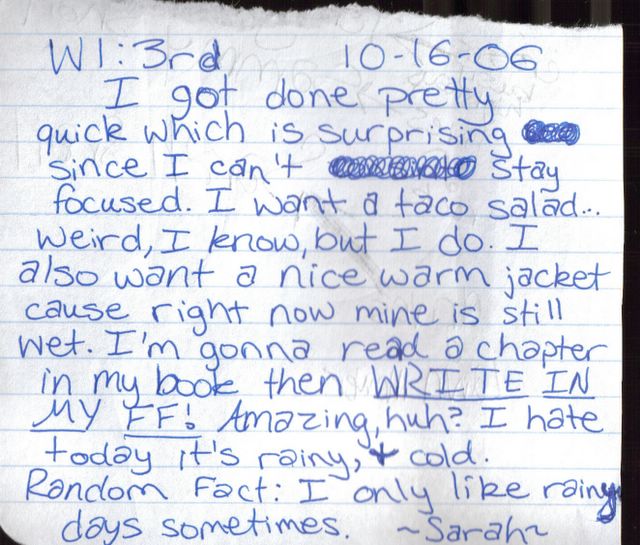 W1:3rd 10-16-06
I got done pretty
quick which is surprising
since I can't stay
focused. I want a taco salad...
weird, I know, but I do. I
also want a nice warm jacket
cause right now mine is still
wet. I'm gonna read a chapter
in my book then WRITE IN
MY FF! Amazing, huh? I hate
today it's rainy, + cold.
Random Fact: I only like rainy
days sometimes. ~Sarah~